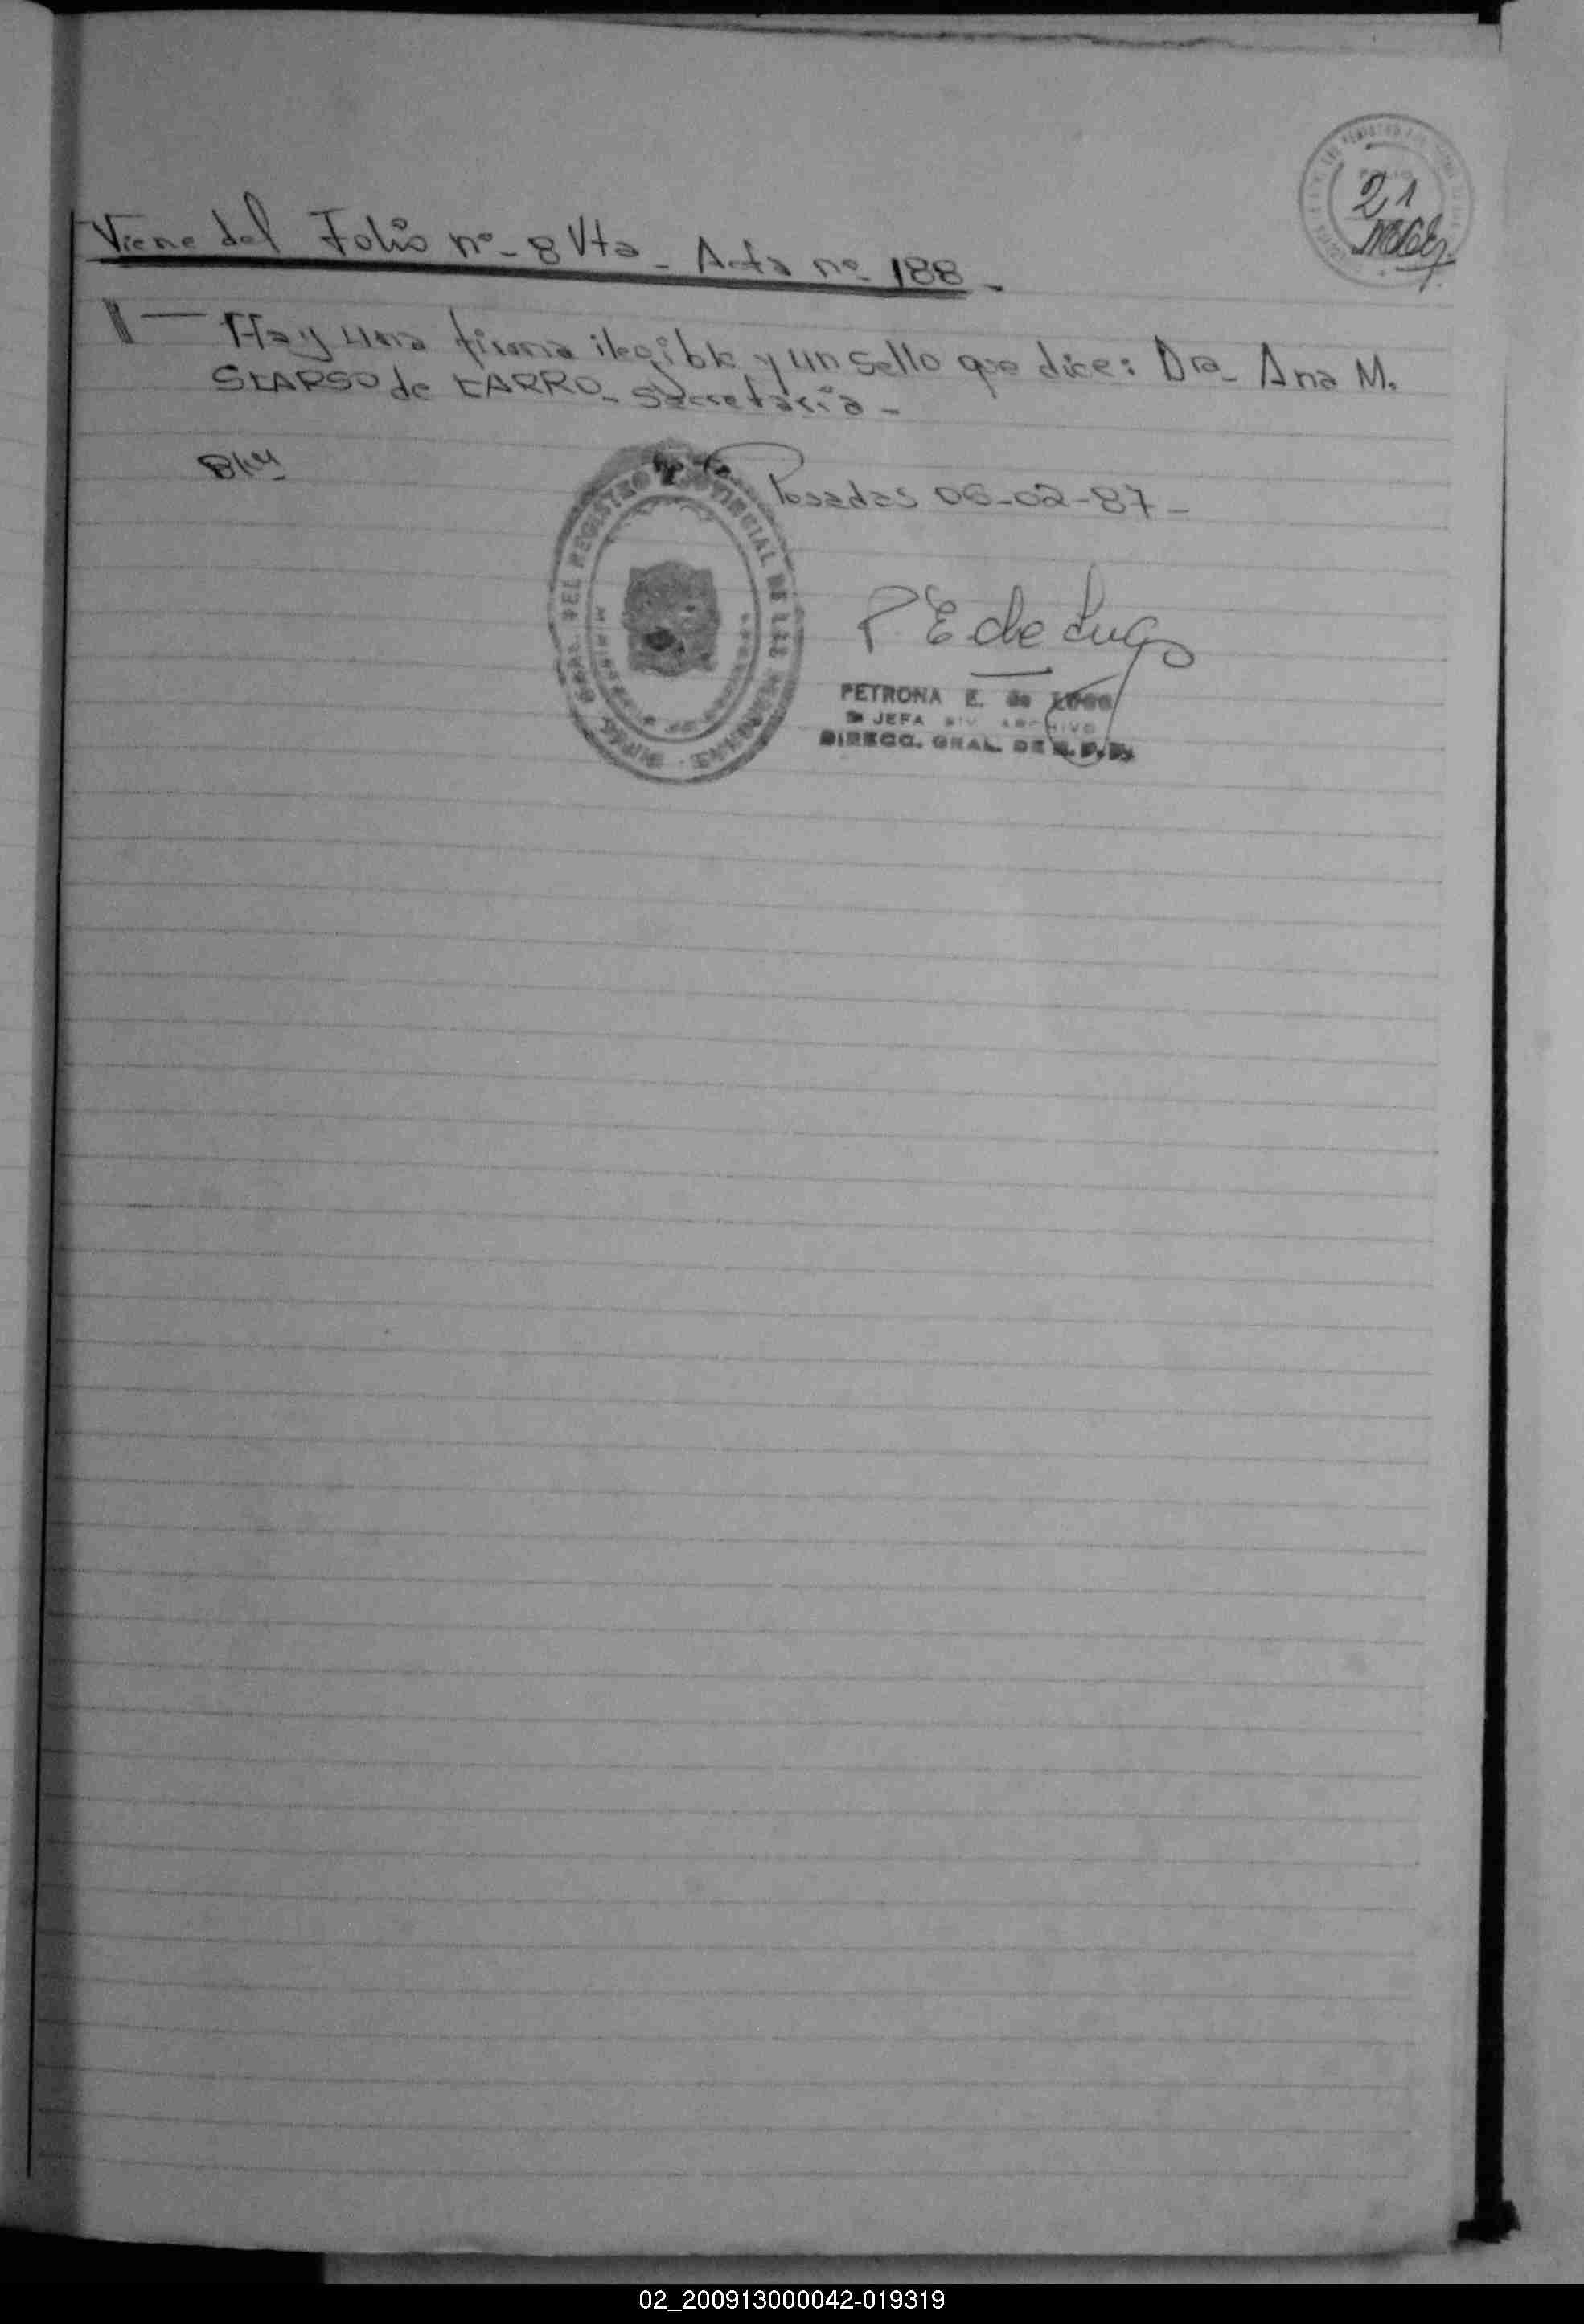 21
Viene del Folio nº - 8 Vta - Acta nº 188 -
Hay una firma ilegible y un sello que dice: Dra - Ana M.
de CARRO - Secretaria -
Posadas 06-02-87 -
DEL REGISTRO PROVINCIAL DE LAS PERSONAS
P. E de Lugo
PETRONA E. de LUGO
JEFA DIV. ARCHIVO
DIRECC. GRAL. DE R.P.P.
02_200913000042-019319